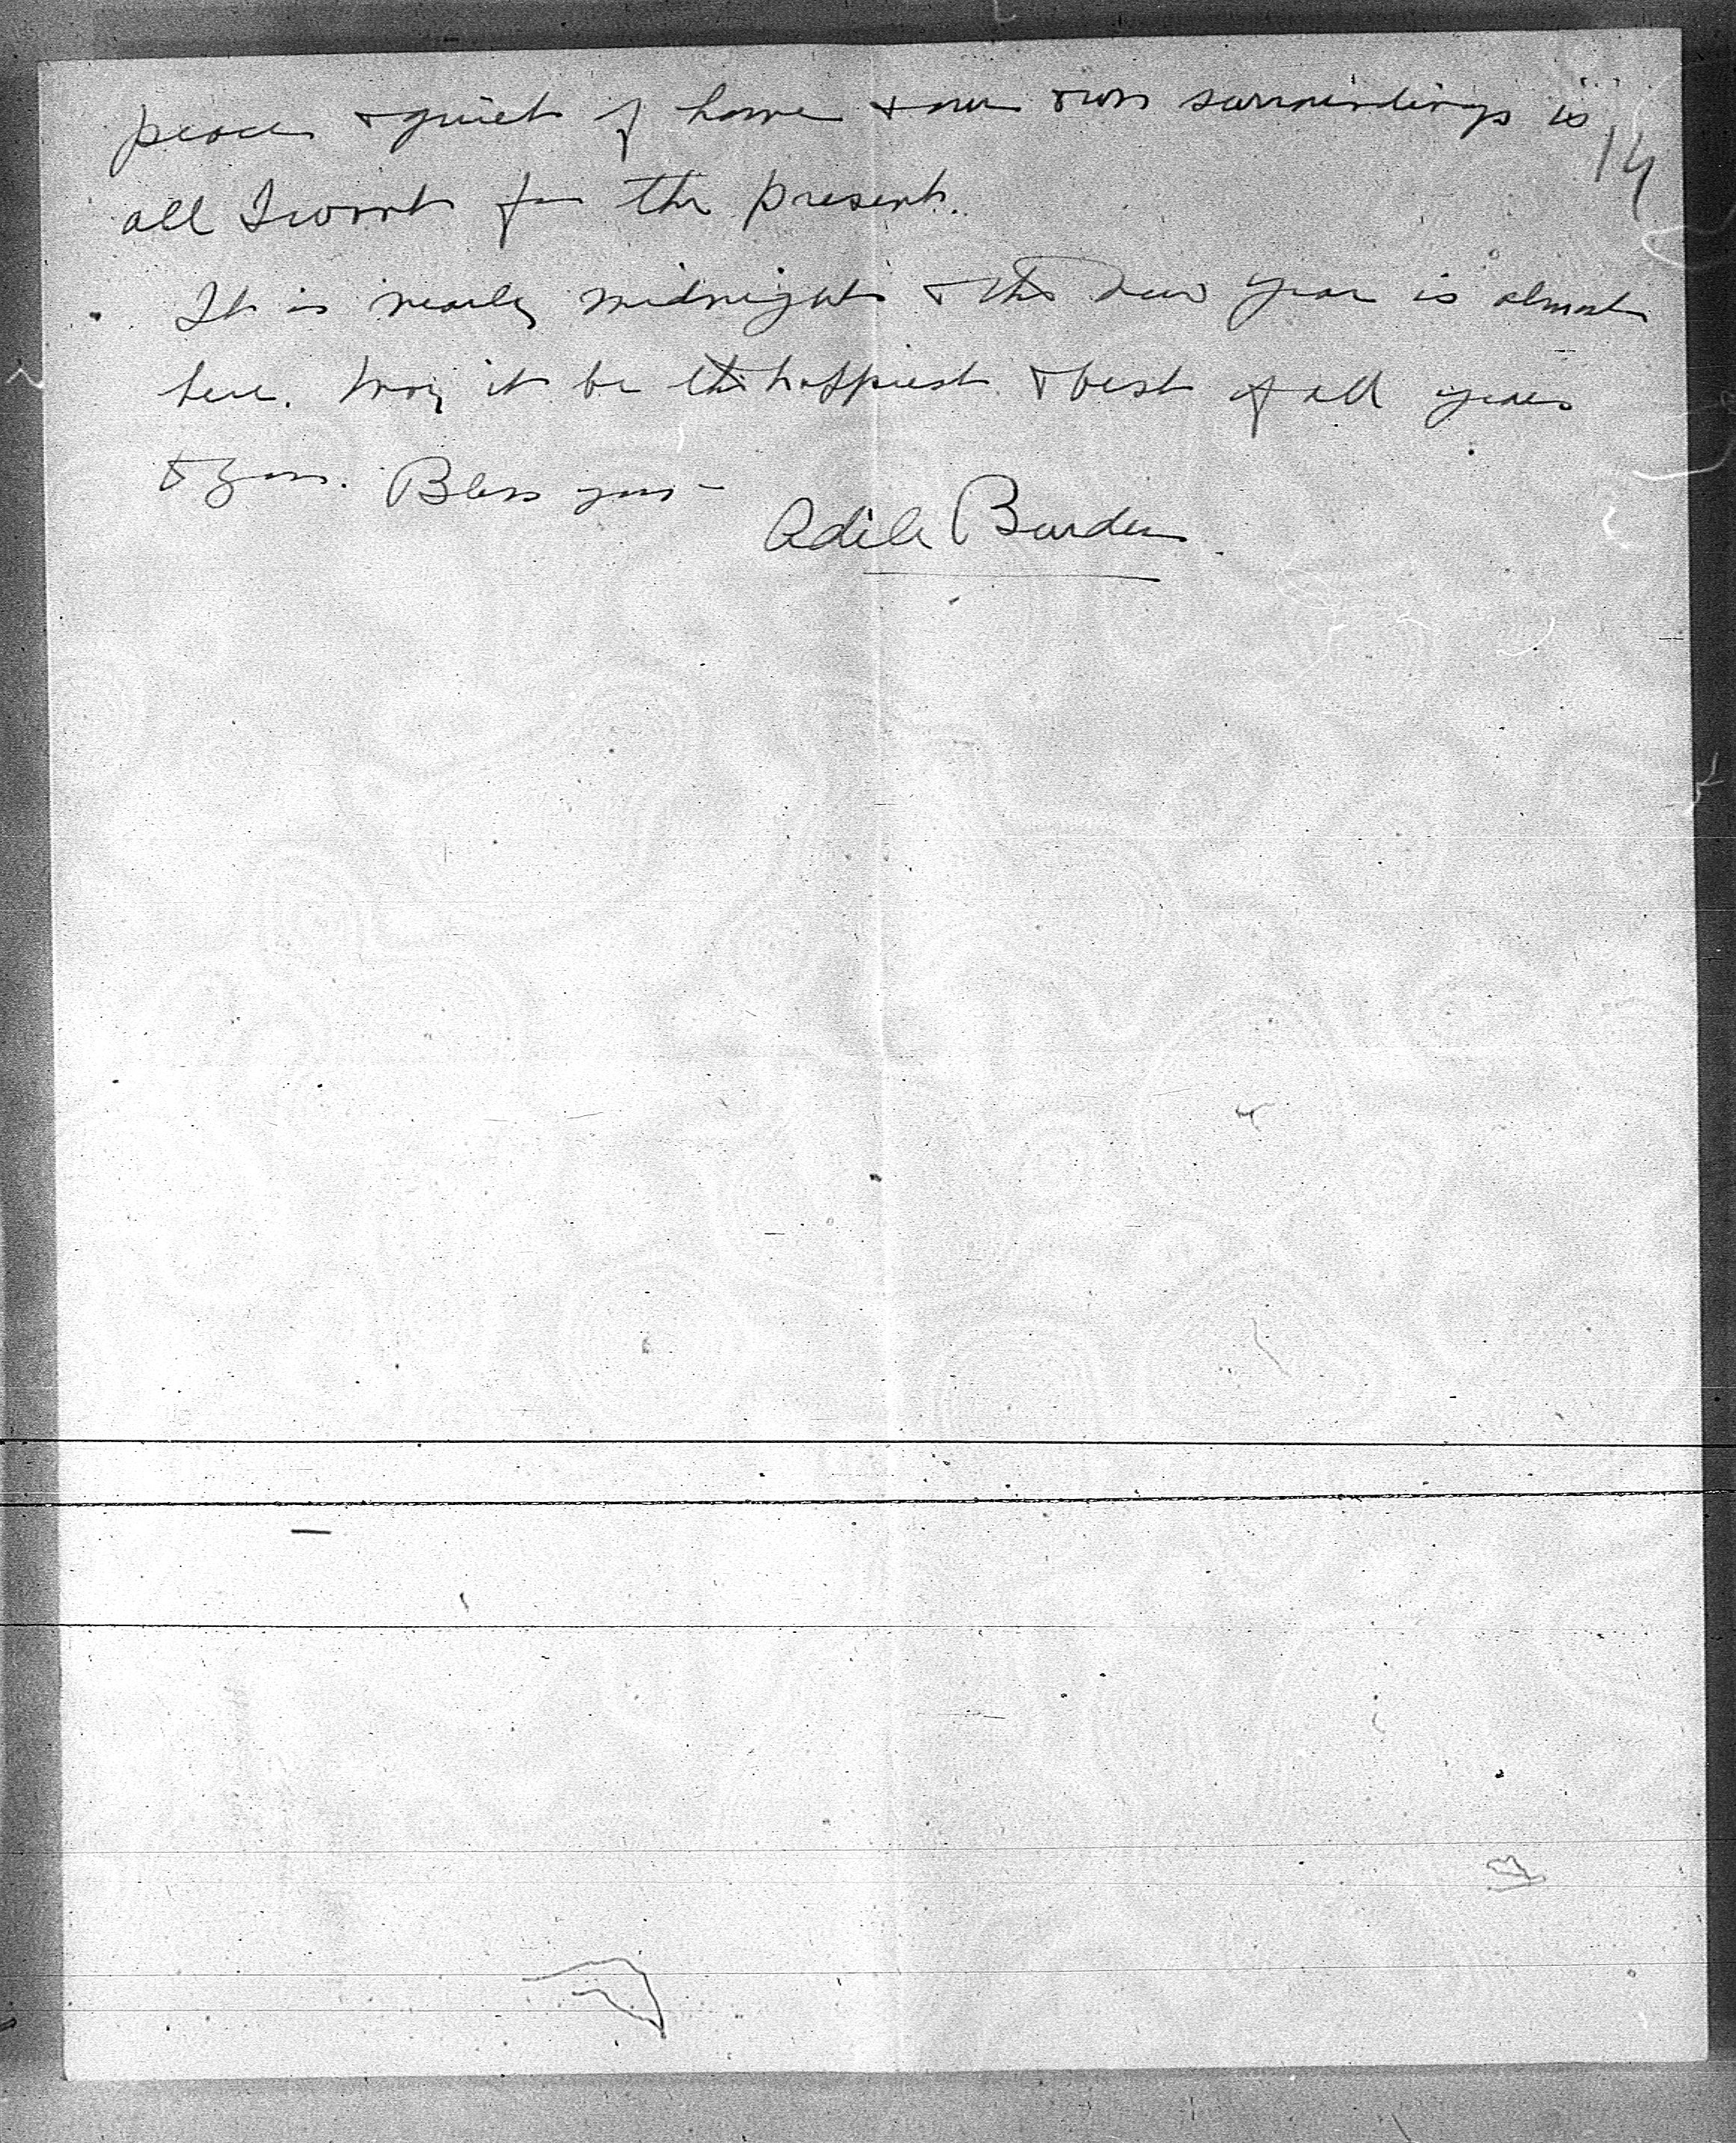 peace & quiet of home & our own surroundings is
14
all I want for the present.
It is nearly midnight & the New Year is almost
here. May it be the happiest & best of all years
to you. Bless you –
Adele Burden